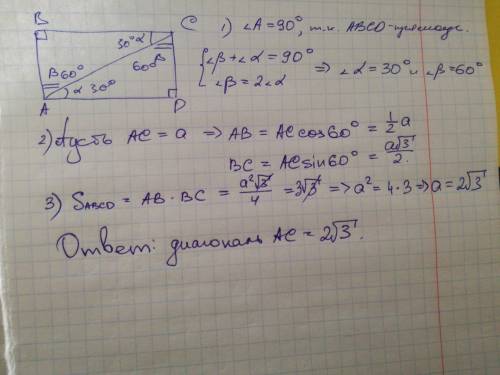 B
C
30° α
β 60°
60° β
α 30°
A
D
1) ∠A = 90°, т.к. ABCD - прямоуг.
{ ∠β + ∠α = 90°
∠β = 2∠α ⇒ ∠α = 30° и ∠β = 60°
2) Пусть AC = a ⇒ AB = AC cos 60° = 1/2 a
BC = AC sin 60° = a√3/2.
3) S_ABCD = AB · BC = a²√3/4 = 3√3 ⇒ a² = 4·3 ⇒ a = 2√3
Ответ: диагональ AC = 2√3.